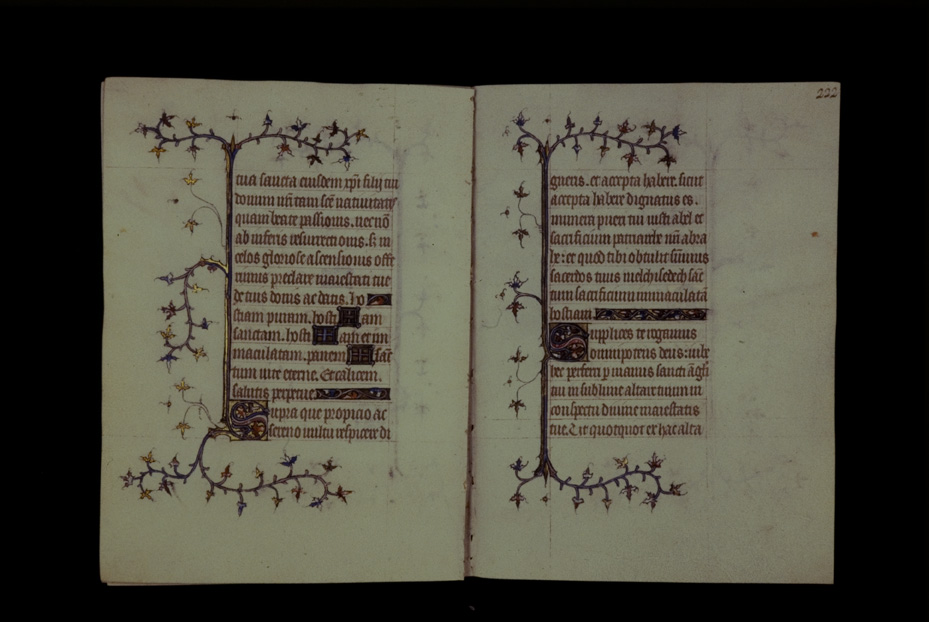 tua sancta eiusdem xpi filij tui
domini nri tam sce natiuitatis
quam beate passionis. necnō
ab inferis resurrectionis. s; in
celos gloriose ascensionis offe
rimus preclare maiestati tue
de tuis donis ac datis. ho
stiam puram. hosti am
sanctam. hosti am et im
maculatam. panem sāc
tum uite eterne. Et calicem
salutis perpetue.
Supra que propicio ac
sereno uultu respicere di
222
gneris. et accepta habere. sicut
accepta habere dignatus es.
munera pueri tui iusti abel et
sacrificium patriarche nrī abra
he: et quod tibi obtulit sūmus
sacerdos tuus melchisedech sāc
tum sacrificium immaculatā
hostiam.
Supplices te rogamus
omnipotens deus: iube
hec perferri p manus sancti āgli
tui in sublime altare tuum in
conspectu diuine maiestatis
tue. Ut quotquot ex hac alta